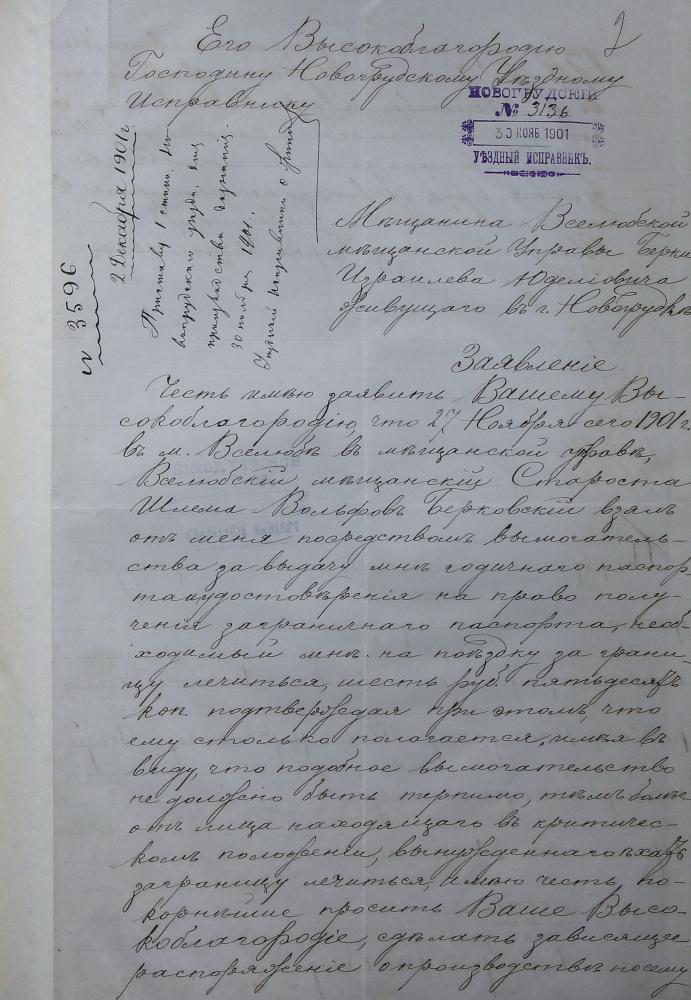 2
Его Высокоблагородію
Господину Новогрудскому Уѣздному
Исправнику
НОВОГРУДСКІЙ
№ 3136
30 НОЯБ 1901
УѢЗДНЫЙ ИСПРАВНИКЪ.
№ 3596
2 Декабря 1901 г.
Приставу 1 стана, Но-
вогрудскаго уѣзда, для
производства дознанія.
30 ноября 1901.
Уѣздный Исправникъ
Мѣщанина Вселюбской
мѣщанской Управы Берки
Израилева Юделіовича
живущаго въ г. Новогрудкѣ
Заявленіе
Честь имѣю заявить Вашему Вы-
сокоблагородію, что 27 Ноября сего 1901 г.
въ м. Вселюбѣ въ мѣщанской управѣ,
Вселюбскій мѣщанскій Староста
Шлема Вольфовъ Берковскій взялъ
отъ меня посредствомъ вымогатель-
ства за выдачу мнѣ годичнаго паспор
та и удостовѣренія на право полу-
ченія заграничнаго паспорта, необ-
ходимый мнѣ на поѣздку за грани-
цу лечиться, шесть руб. пятьдесятъ
коп. подтверждая при этомъ, что
ему столько полагается, имѣя въ
виду, что подобное вымогательство
не должно быть терпимо, тѣмъ болѣе
отъ лица находящаго въ критичес-
комъ положеніи, вынужденнаго ѣхать
заграницу лечиться, имѣю честь по-
корнѣйше просить Ваше Высо-
коблагородіе, сдѣлать зависящее
распоряженіе о производствѣ по сему